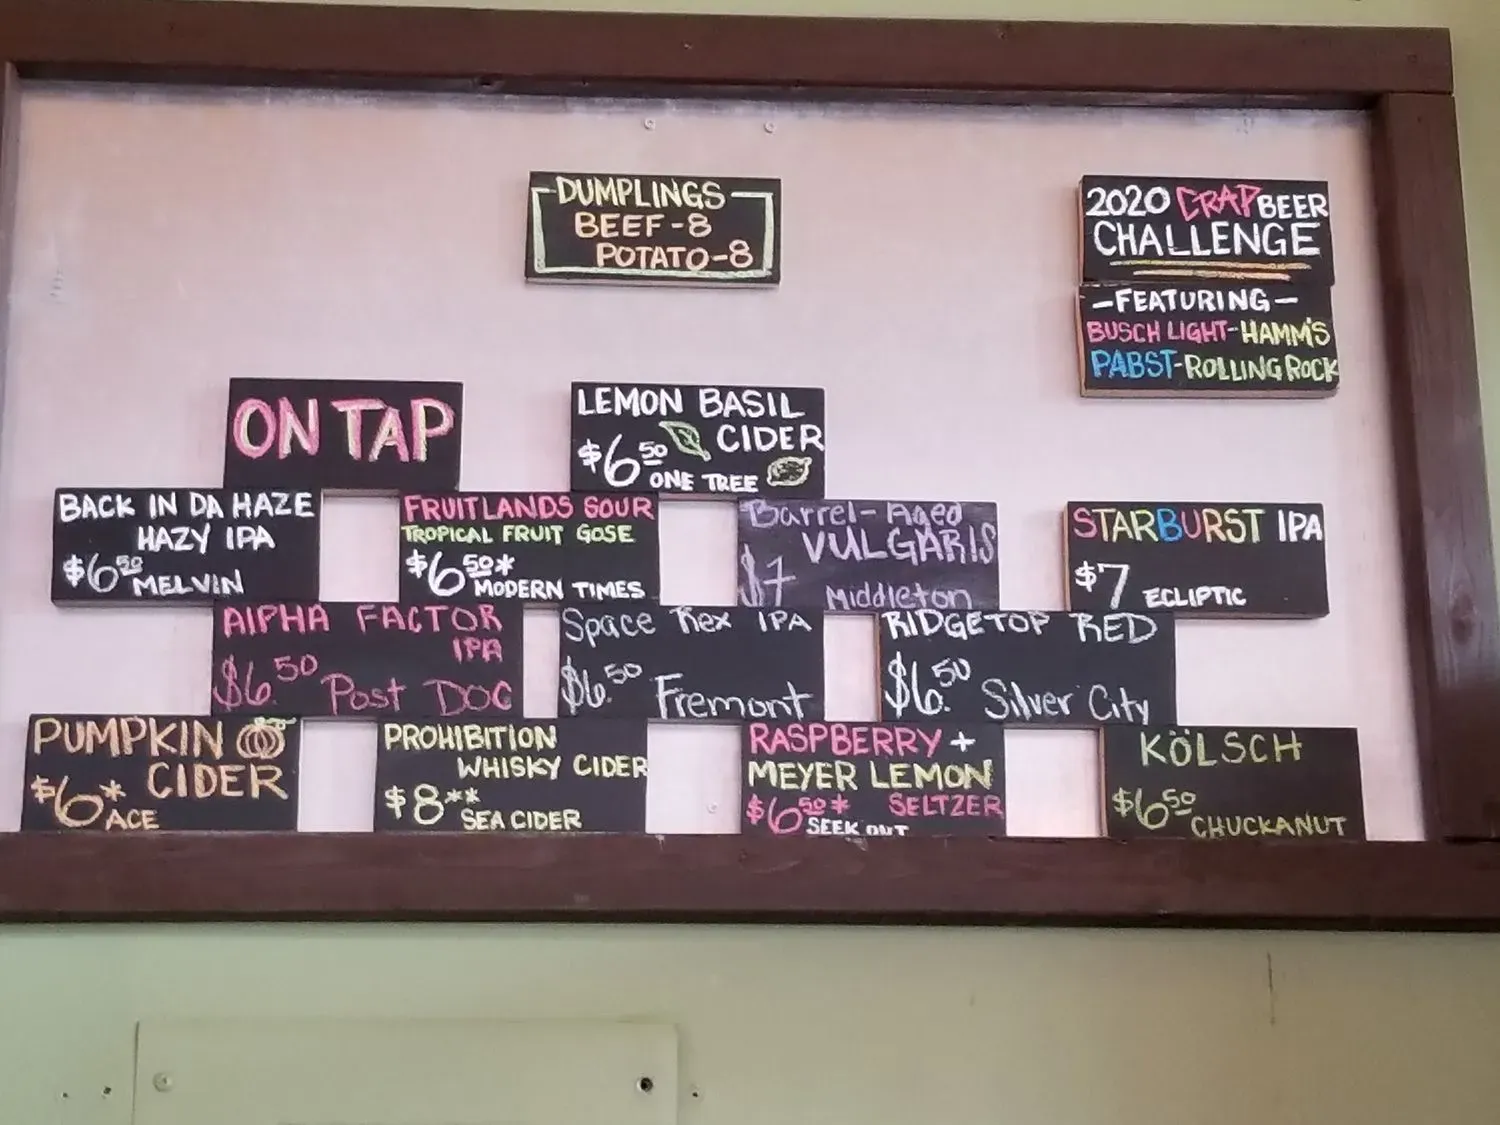 DUMPLINGS
BEEF-8
POTATO-8
2020 CRAP BEER
CHALLENGE
-FEATURING-
BUSCH LIGHT-HAMM'S
PABST-ROLLING ROCK
ON TAP
LEMON BASIL
CIDER
$6.50
ONE TREE
BACK IN DA HAZE
HAZY IPA
$6.50
MELVIN
FRUITLANDS SOUR
TROPICAL FRUIT GOSE
$6.50*
MODERN TIMES
Barrel-Aged
VULGARIS
$7
Middleton
STARBURST IPA
$7
ECLIPTIC
AlPHA FACTOR
IPA
$6.50 Post DOC
Space Rex IPA
$6.50 Fremont
RIDGETOP RED
$6.50 Silver City
PUMPKIN
CIDER
$6*
ACE
PROHIBITION
WHISKY CIDER
$8**
SEA CIDER
RASPBERRY +
MEYER LEMON
$6.50* SELTZER
SEEK OUT
KÖLSCH
$6.50
CHUCKANUT